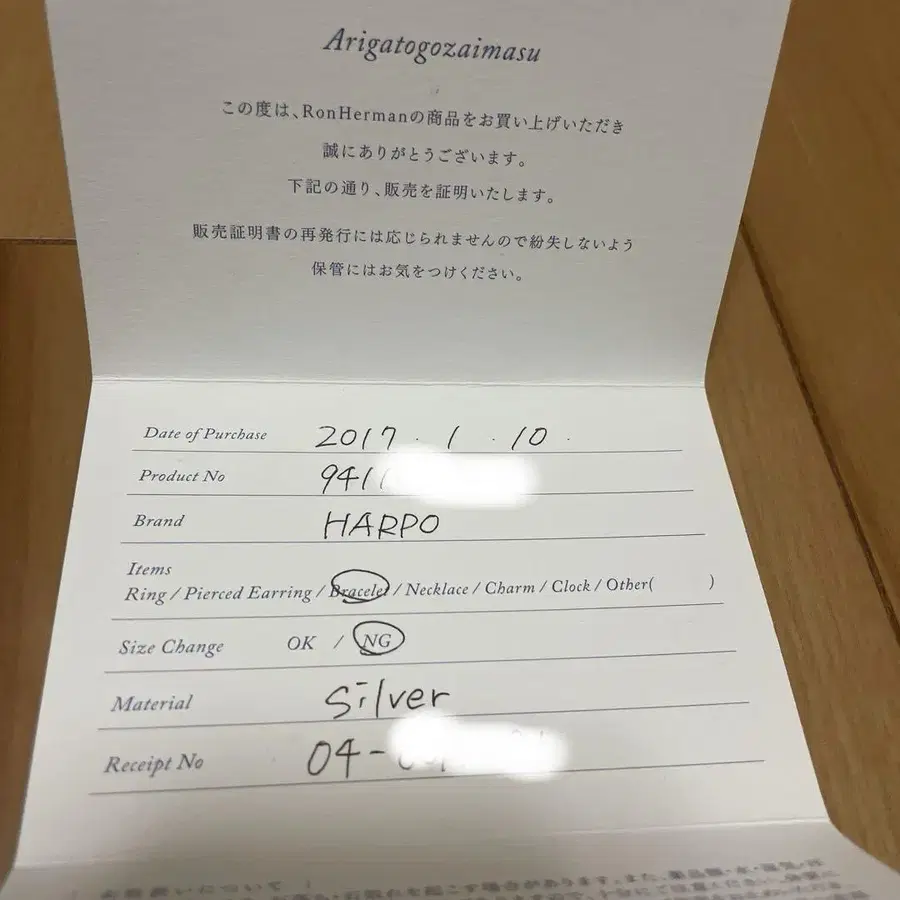 Arigatogozaimasu
この度は、RonHermanの商品をお買い上げいただき
誠にありがとうございます。
下記の通り、販売を証明いたします。
販売証明書の再発行には応じられませんので紛失しないよう
保管にはお気をつけください。
Date of Purchase 2017.1.10.
Product No 9411
Brand HARPO
Items
Ring / Pierced Earring / Bracelet / Necklace / Charm / Clock / Other( )
Size Change OK / NG
Material Silver
Receipt No 04-